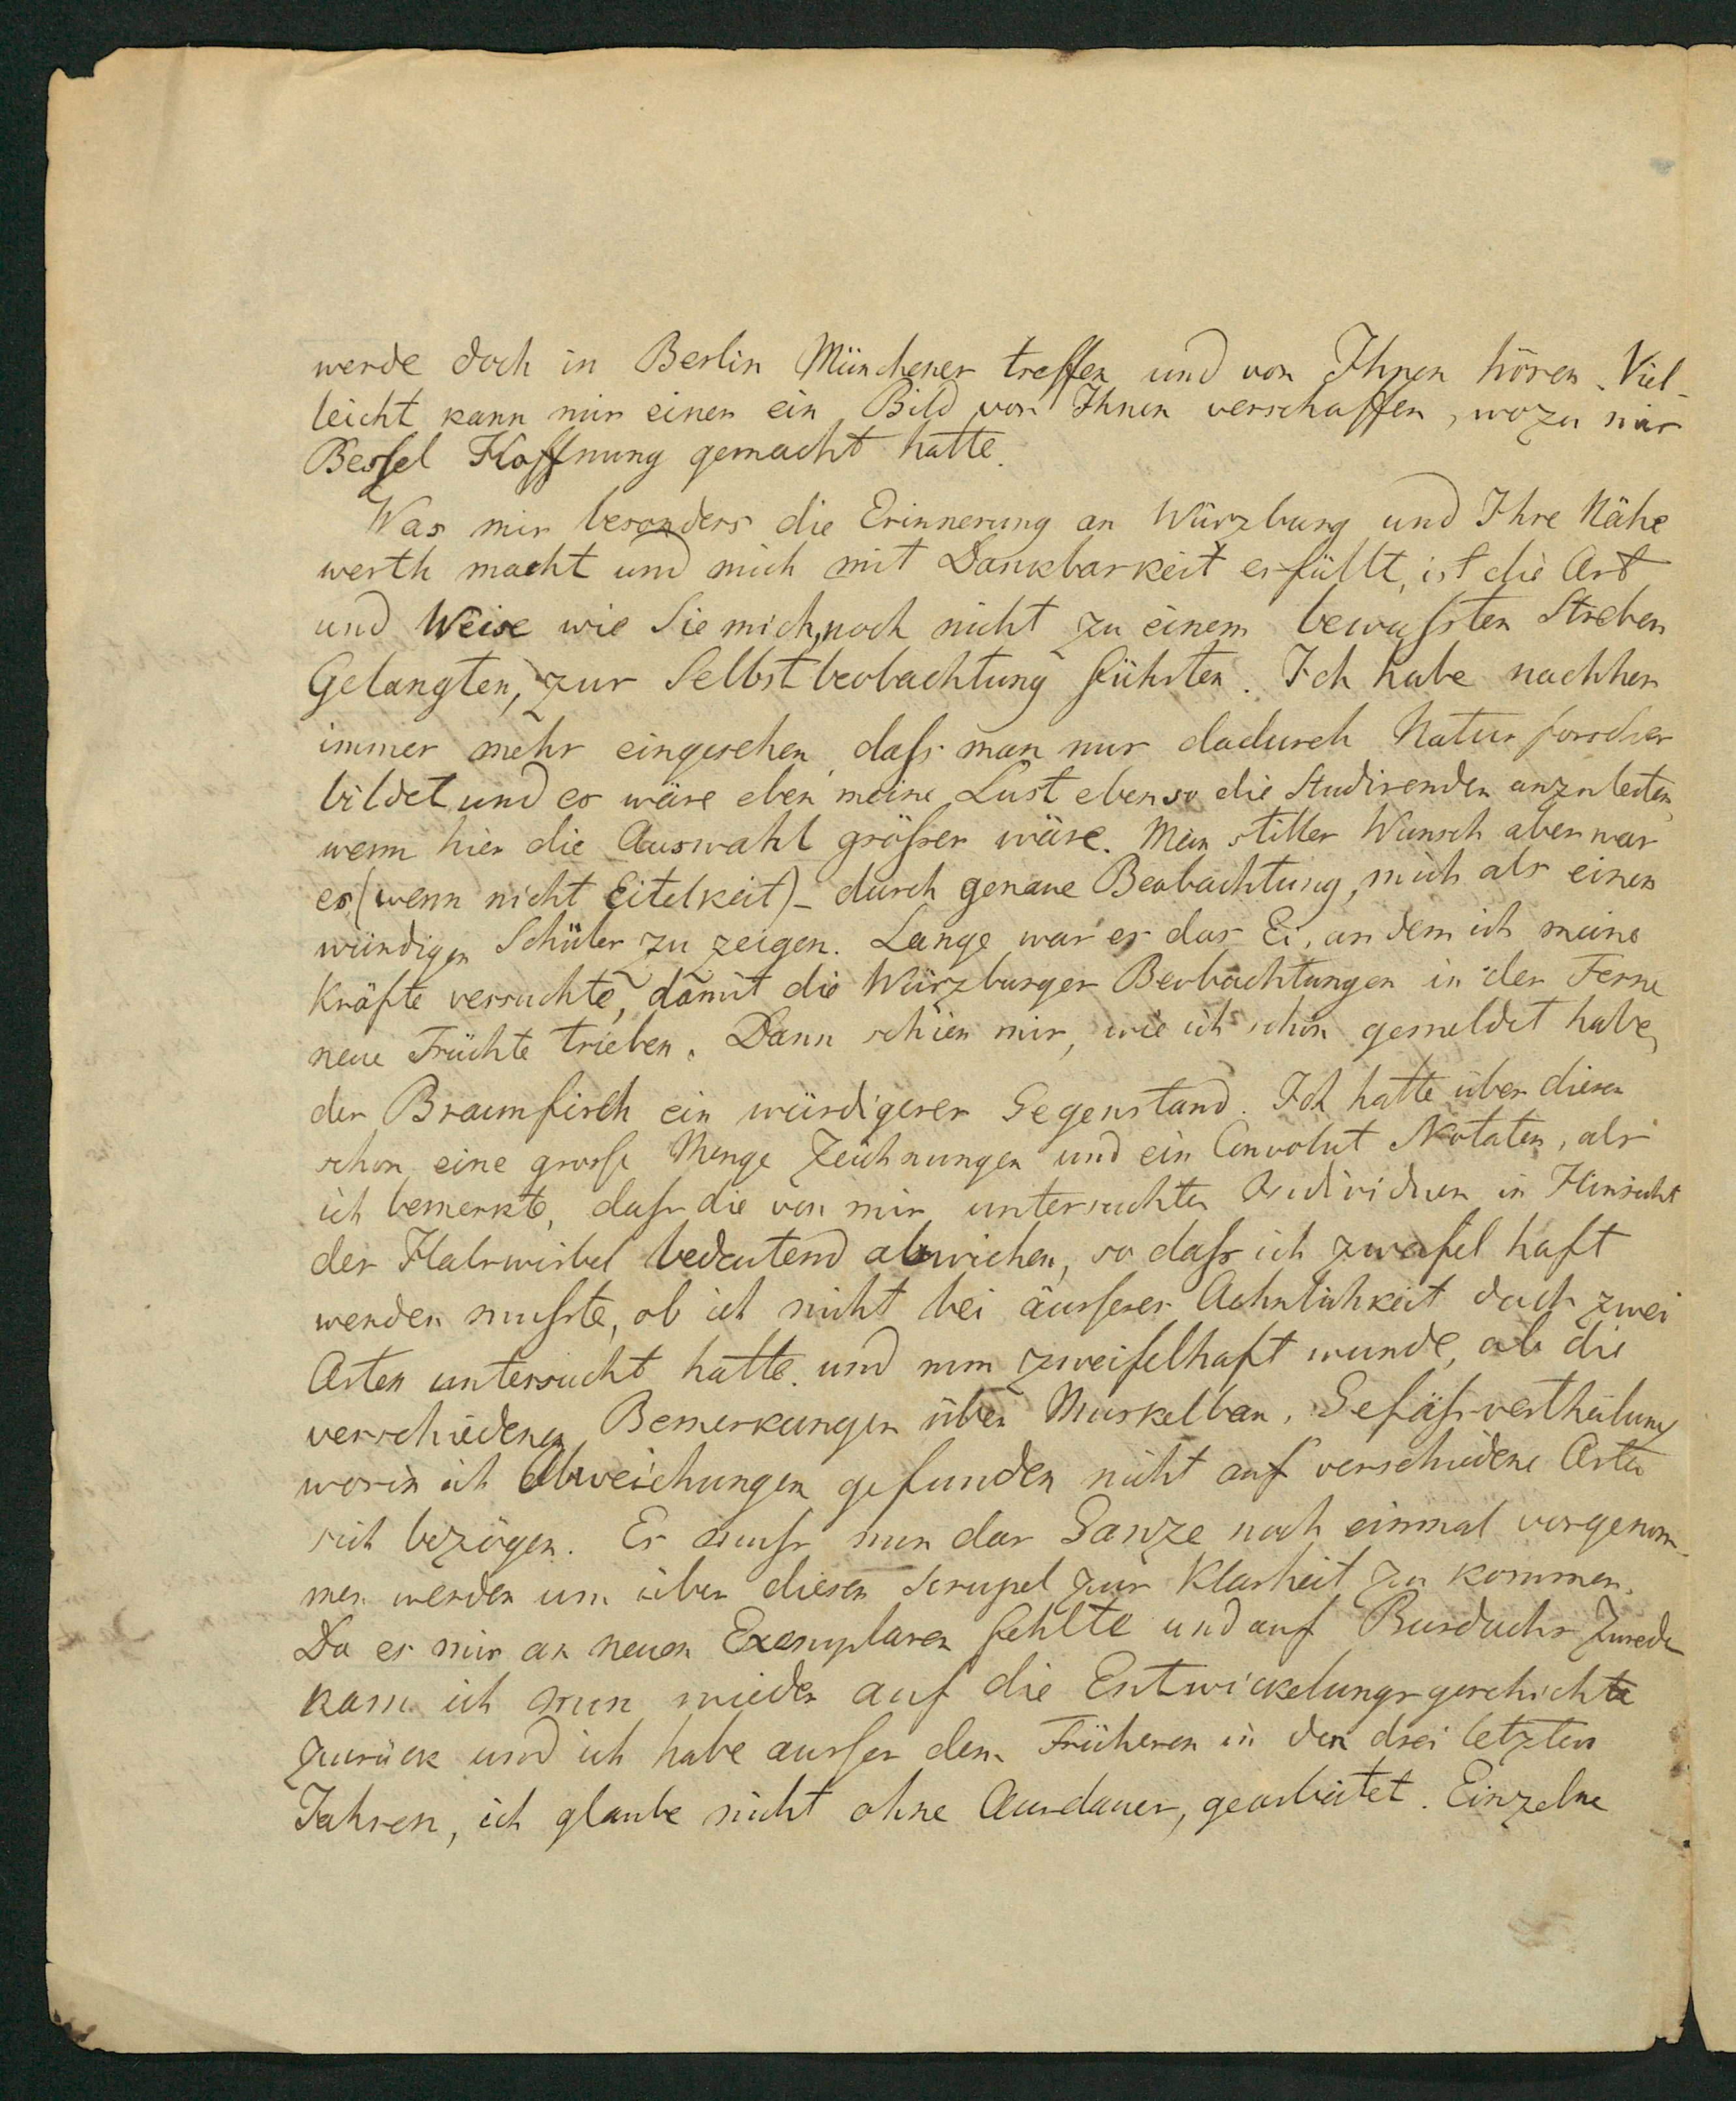 werde doch in Berlin Münchener treffen und von Ihnen hören. Viel-
leicht kann mir einer ein Bild von Ihnen verschaffen, wozu mir
Bessel Hoffnung gemacht hatte.
Was mir besonders die Erinnerung an Würzburg und Ihre Nähe
werth macht und mich mit Dankbarkeit erfüllt, ist die Art
und Weise wie Sie mich, noch nicht zu einem bewußten Streben
Gelangten, zur Selbstbeobachtung führten. Ich habe nachher
immer mehr eingesehen, daß man nur dadurch Naturforscher
bildet und es wäre eben meine Lust ebenso die Studirenden anzuleiten,
wenn hier die Auswahl größer wäre. Mein stiller Wunsch aber war
es (wenn nicht Eitelkeit) – durch genaue Beobachtung, mich als einen
würdigen Schüler zu zeigen. Lange war es das Ei, an dem ich meine
Kräfte versuchte, damit die Würzburger Beobachtungen in der Ferne
neue Früchte trieben. Dann schien mir, wie ich schon gemeldet habe,
der Braunfisch ein würdigerer Gegenstand. Ich hatte über diesen
schon eine grosse Menge Zeichnungen und ein Convolut Notaten, als
ich bemerkte, daß die von mir untersuchten Individuen in Hinsicht
der Halswirbel bedeutend abwichen, so daß ich zweifelhaft
werden mußte, ob ich nicht bei äusserer Aehnlichkeit doch zwei
Arten untersucht hatte und nun zweifelhaft wurde, ob die
verschiedenen Bemerkungen über Muskelbau, Gefäßvertheilung
worin ich Abweichungen gefunden nicht auf verschiedene Arten
sich bezögen. Es muß nun das Ganze noch einmal vorgenom-
men werden um über diesen Scrupel zur Klarheit zu kommen.
Da es mir an neuen Exemplaren fehlte und auf Burdachs Zureden
kam ich nun wieder auf die Entwickelungsgeschichte
zurück und ich habe ausser dem Früheren in den drei letzten
Jahren, ich glaube nicht ohne Ausdauer, gearbeitet. Einzelne